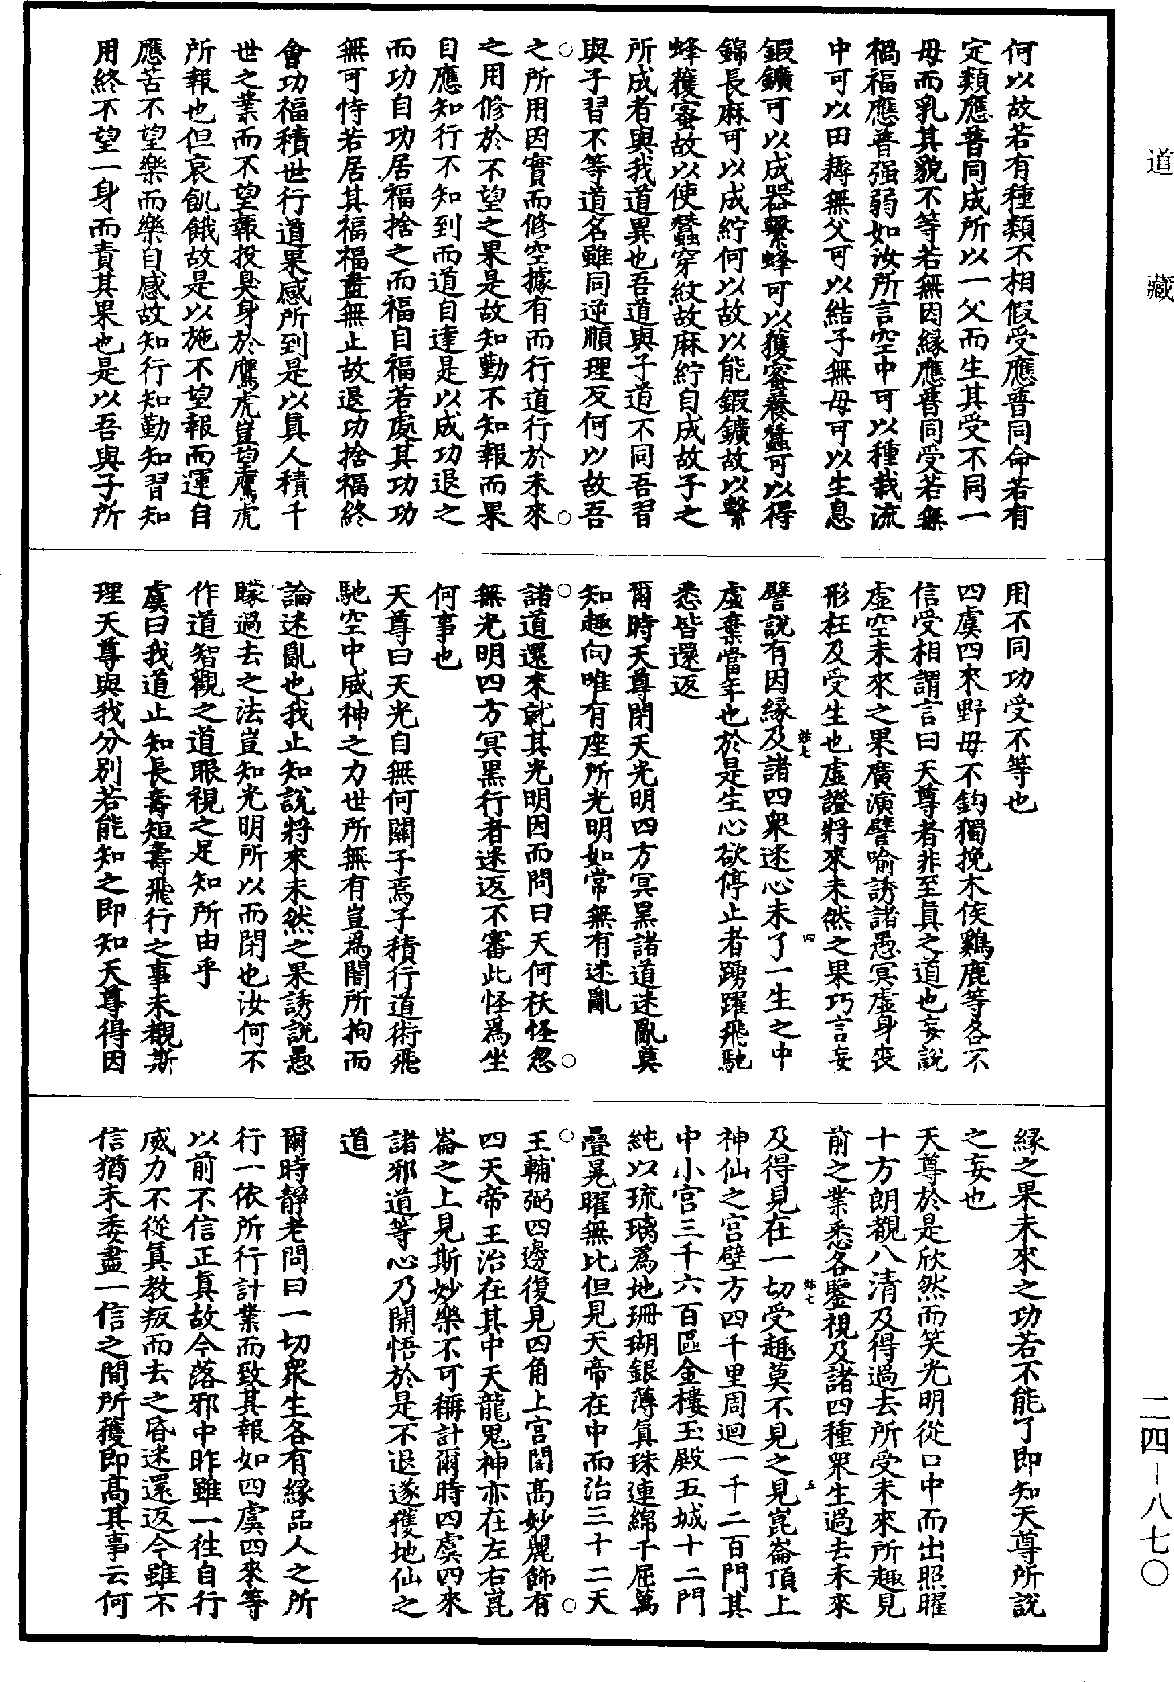 道藏
何以故若有種類不相假受應普同命若有
定類應普同成所以一父而生其受不同一
母而乳其貌不等若無因緣應普同受若無
禍福應普强弱如汝所言空中可以種栽流
中可以田耨無父可以結子無母可以生息
鍛鑛可以成器繫蜂可以獲蜜養蠶可以得
錦長麻可以成紵何以故以能鍛鑛故以繫
蜂獲蜜故以使蠶穿紋故麻紵自成故子之
所成者與我道異也吾道與子道不同吾習
與子習不等道名雖同逆順理反何以故吾
之所用因實而修空據有而行道行於未來
之用修於不望之果是故知勤不知報而果
自應知行不知到而道自達是以成功退之
而功自功居福捨之而福自福若處其功功
無可恃若居其福福盡無止故退功捨福終
會功福積世行道果感所到是以真人積千
世之業而不望報投臭身於鷹虎豈望鷹虎
所報也但哀飢餓故是以施不望報而運自
應苦不望樂而樂自感故知行知勤知習知
用終不望一身而責其果也是以吾與子所
用不同功受不等也
四虞四來野母不鈞獨挽木侯鷄鹿等各不
信受相謂言曰天尊者非至真之道也妄說
虛空未來之果廣演譬喻誘諸愚冥虛身喪
形枉及受生也虛證將來未然之果巧言妄
譬說有因緣及諸四衆迷心未了一生之中
虛棄當年也於是生心欲停止者踴躍飛馳
悉皆還返
爾時天尊閉天光明四方冥黑諸道迷亂莫
知趣向唯有座所光明如常無有迷亂
諸道還來就其光明因而問曰天何祅怪忽
無光明四方冥黑行者迷返不審此怪爲坐
何事也
天尊曰天光自無何關子焉子積行道術飛
馳空中威神之力世所無有豈爲闇所拘而
論迷亂也我止知說將來未然之果誘說愚
矇過去之法豈知光明所以而閉也汝何不
作道智觀之道眼視之足知所由乎
虞曰我道止知長壽短壽飛行之事未觀斯
理天尊與我分別若能知之即知天尊得因
緣之果未來之功若不能了即知天尊所說
之妄也
天尊於是欣然而笑光明從口中而出照曜
十方朗觀八清及得過去所受未來所趣見
前之業悉各鑒視及諸四種衆生過去未來
及得見在一切受趣莫不見之見崑崙頂上
神仙之宮壁方四千里周迴一千二百門其
中小宮三千六百區金樓玉殿五城十二門
純以琉璃爲地珊瑚銀薄真珠連綿千屈萬
疊晃曜無比但見天帝在中而治三十二天
王輔弼四邊復見四角上宮閣高妙麗飾有
四天帝王治在其中天龍鬼神亦在左右崑
崙之上見斯妙樂不可稱計爾時四虞四來
諸邪道等心乃開悟於是不退遂獲地仙之
道
爾時靜老問曰一切衆生各有緣品人之所
行一依所行計業而致其報如四虞四來等
以前不信正真故今落邪中昨雖一往自行
威力不從真教叛而去之昏迷還返今雖不
信猶未委盡一信之間所獲即高其事云何
二四－八七〇